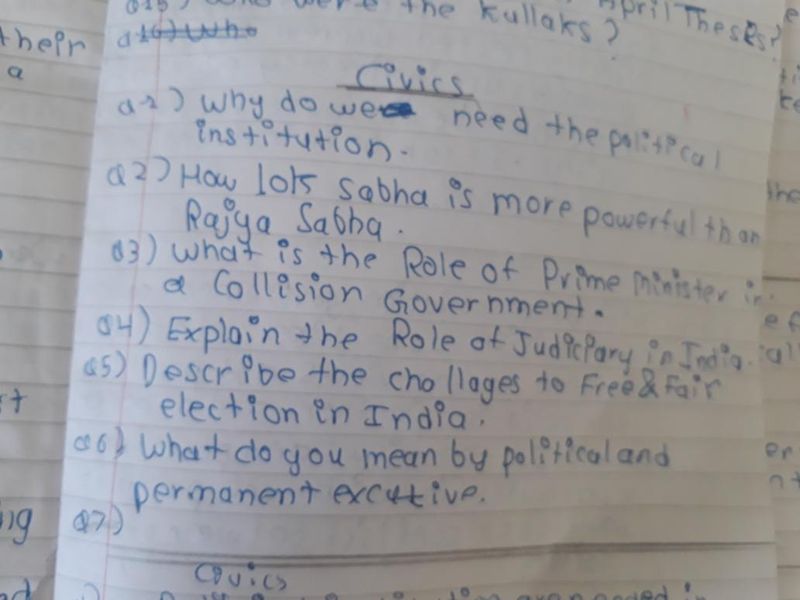 were the Kullaks? April Theses?
their
a
Civics
Q1) Why do we need the political
institution.
Q2) How lok sabha is more powerful than
Rajya Sabha.
Q3) What is the Role of Prime minister in
a Collision Government.
Q4) Explain the Role of Judiciary in India.
Q5) Describe the challages to Free & Fair
election in India.
Q6) What do you mean by political and
permanent excutive.
Q7)
Civics